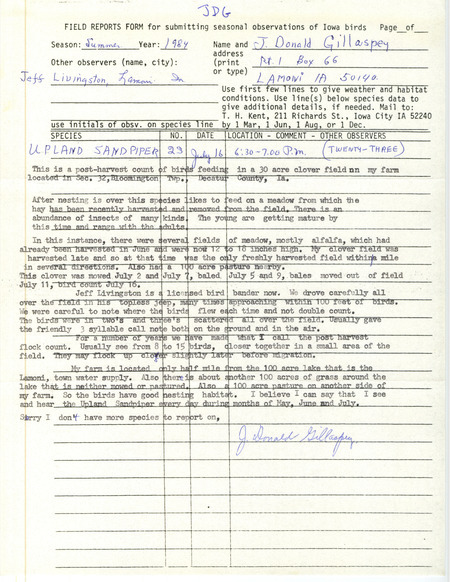 JDG
FIELD REPORTS FORM for submitting seasonal observations of Iowa birds Page__of__
Season: Summer Year: 1984 Name and J. Donald Gillaspey
address
Other observers (name, city): (print Rt. 1 Box 66
or type)
Jeff Livingston, Lamoni Ia LAMONI IA 50140
Use first few lines to give weather and habitat
conditions. Use line(s) below species data to
give additional details, if needed. Mail to:
T. H. Kent, 211 Richards St., Iowa City IA 52240
use initials of obsv. on species line by 1 Mar, 1 Jun, 1 Aug, or 1 Dec.
SPECIES NO. DATE LOCATION - COMMENT - OTHER OBSERVERS
UPLAND SANDPIPER 23 July 16 6:30-7:00 P.m. (TWENTY-THREE)
This is a post-harvest count of birds feeding in a 30 acre clover field on my farm
located in Sec. 32, Bloomington Twp., Decatur County, Ia.
After nesting is over this species likes to feed on a meadow from which the
hay has been recently harvested and removed from the field. There is an
abundance of insects of many kinds. The young are getting mature by
this time and range with the adults.
In this instance, there were several fields of meadow, mostly alfalfa, which had
already been harvested in June and were now 12 to 18 inches high. My clover field was
harvested late and so at that time was the only freshly harvested field within a mile
in several directions. Also had a 100 acre pasture nearby.
This clover was mowed July 2 and July 7, baled July 5 and 9, bales moved out of field
July 11, bird count July 16.
Jeff Livingston is a licensed bird bander now. We drove carefully all
over the field in his topless jeep, many times approaching within 100 feet of birds.
We were careful to note where the birds flew each time and not double count.
The birds were in two's and three's scattered all over the field. Usually gave
the friendly 3 syllable call note both on the ground and in the air.
For a number of years we have made what I call the post harvest
flock count. Usually see from 8 to 15 birds, closer together in a small area of the
field. They may flock up closer slightly later before migration.
My farm is located only half mile from the 100 acre lake that is the
Lamoni, town water supply. Also there is about another 100 acres of grass around the
lake that is neither mowed or pastured. Also a 100 acre pasture on another side of
my farm. So the birds have good nesting habitat. I believe I can say that I see
and hear the Upland Sandpiper every day during months of May, June and July.
Sorry I don't have more species to report on,
J. Donald Gillaspey